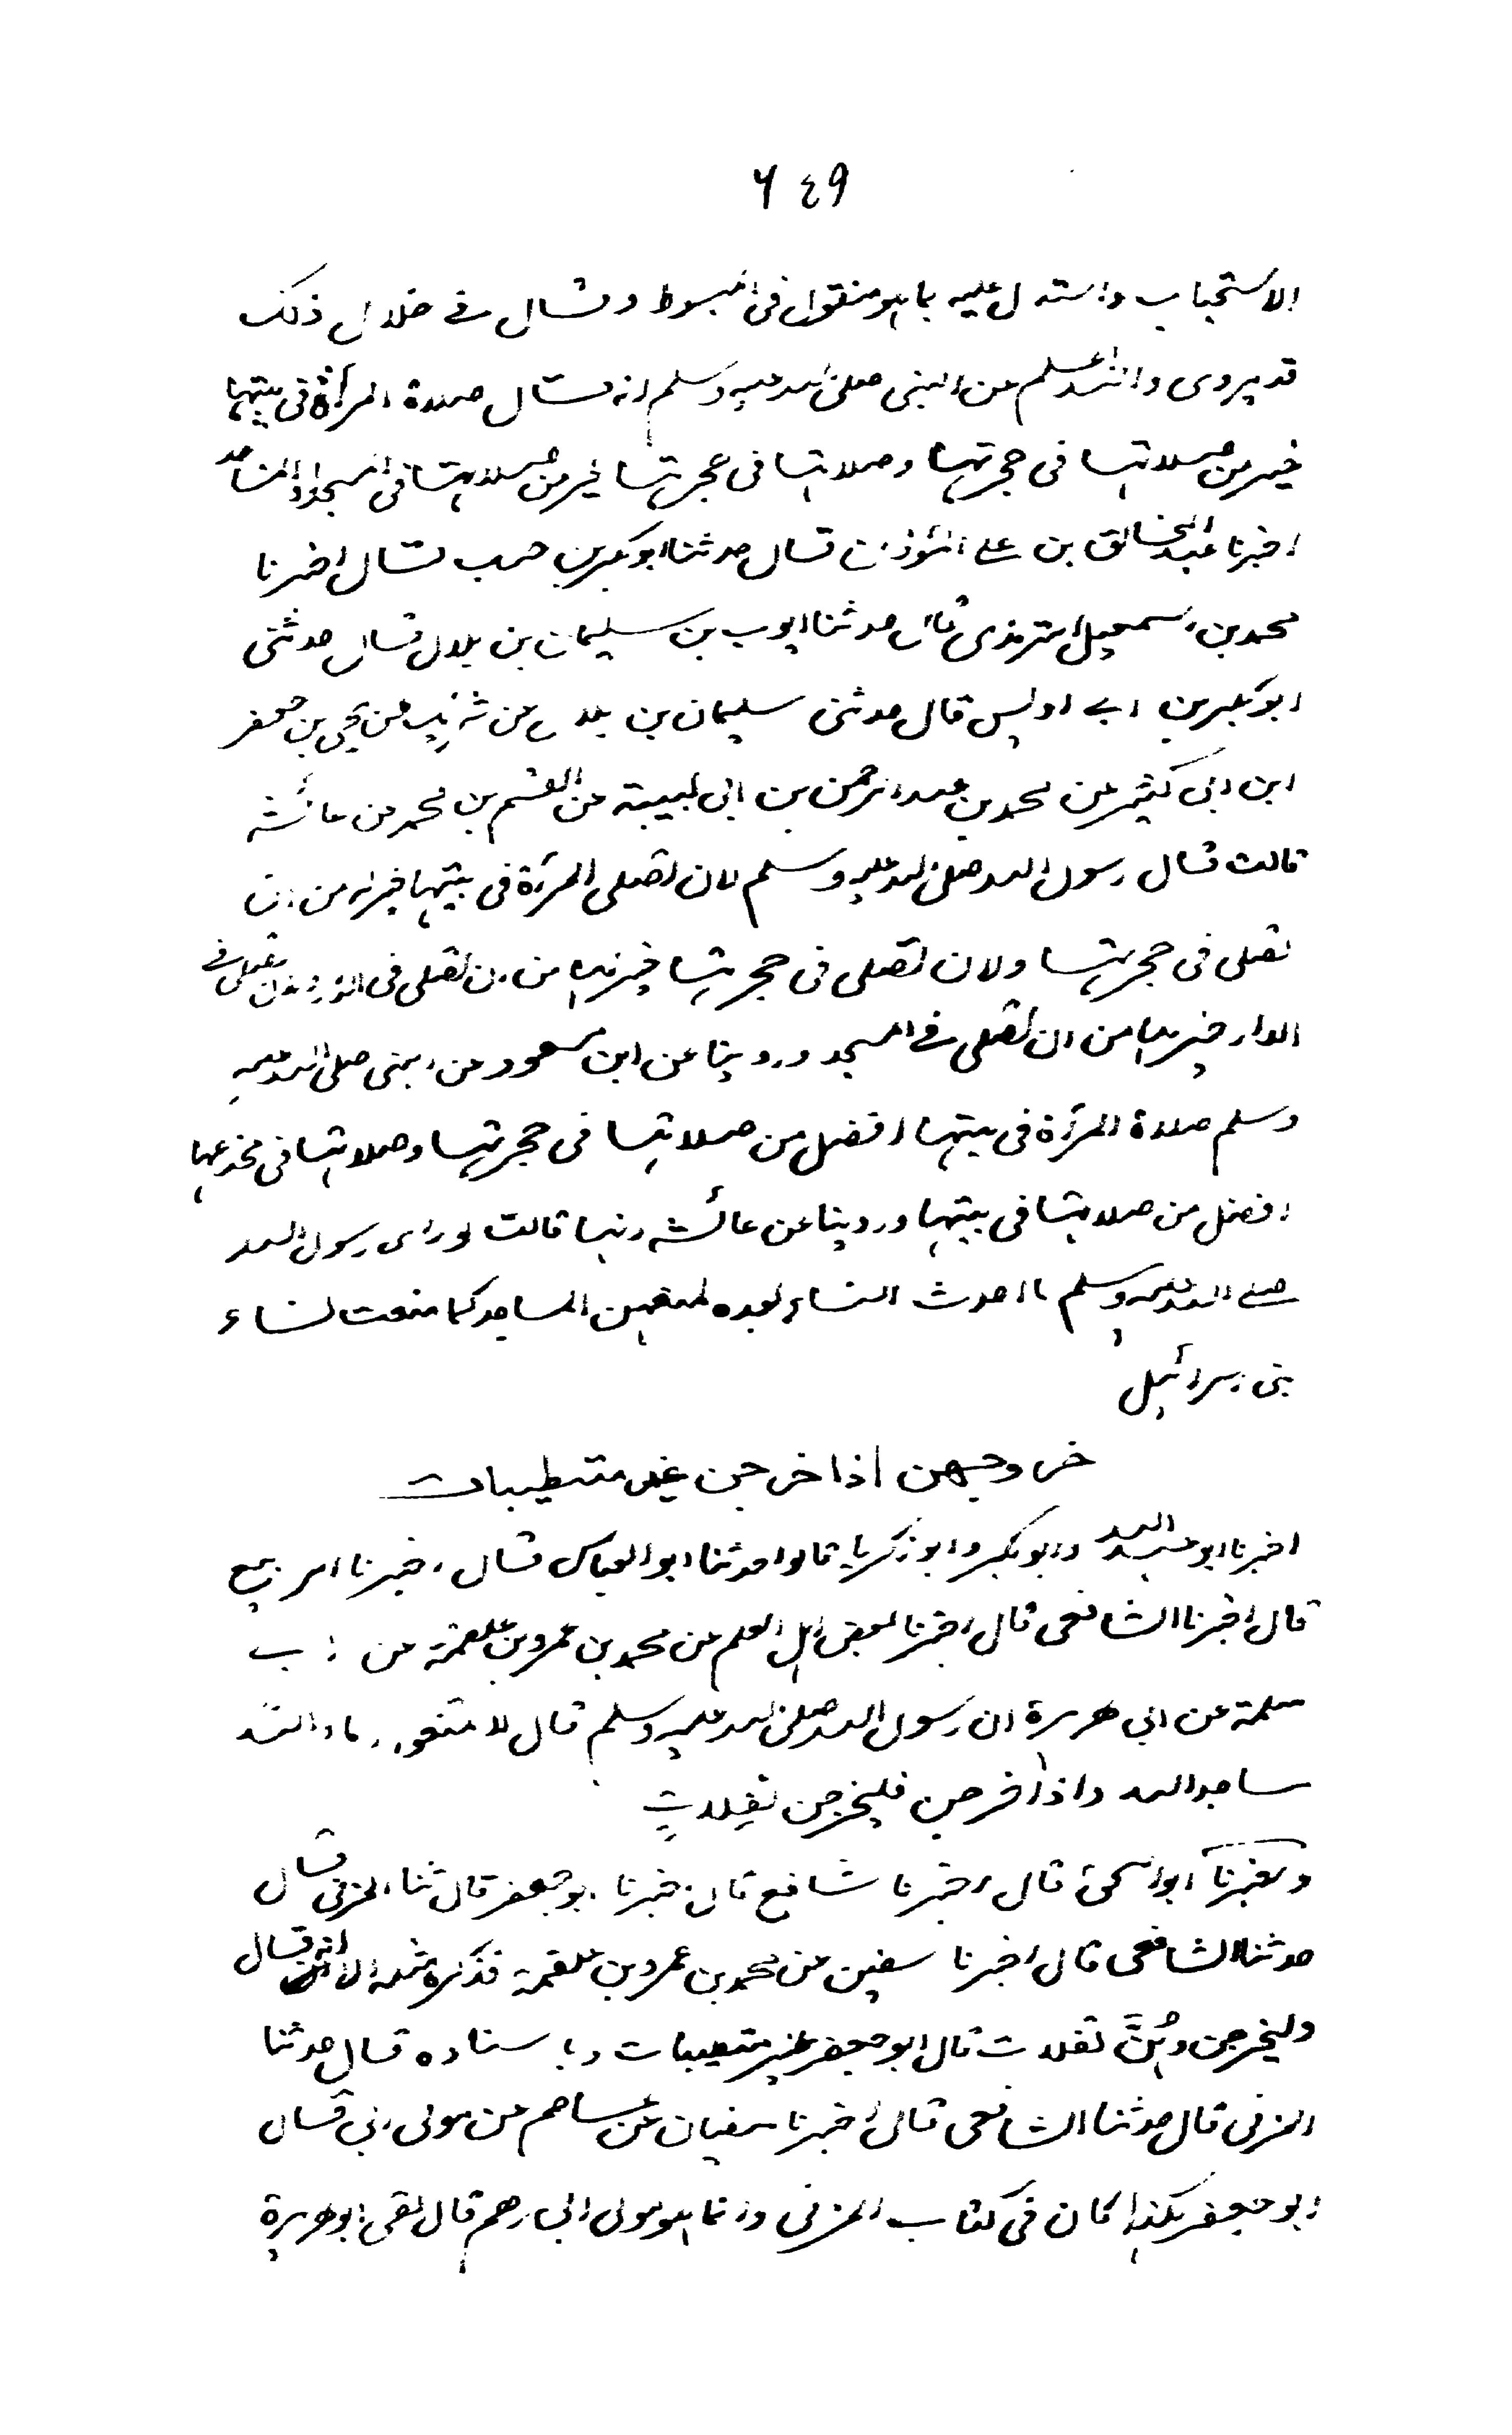 ٦٤٩
الاستحباب واستدل عليه بما هو منقول في المبسوط وقال في خلال ذلك
قد يروى والله اعلم عن النبي صلى الله عليه وسلم انه قال صلاة المرأة في بيتها
خير من صلاتها في حجرتها وصلاتها في حجرتها خير من صلاتها في المسجد او المساجد
اخبرنا عبد الخالق بن علي المؤذن قال حدثنا ابو بكر بن حنب قال اخبرنا
محمد بن اسمعيل الترمذي قال حدثنا ايوب بن سليمان بن بلال قال حدثني
ابو بكر بن ابي اويس قال حدثني سليمان بن بلال عن شريك عن يحيى بن جعفر
ابن ابي كثير عن محمد بن عبد الرحمن بن ابي لبيبة عن القسم بن محمد عن عائشة
قالت قال رسول الله صلى الله عليه وسلم لان تصلي المرأة في بيتها خير له من ان
تصلي في حجرتها ولان تصلي في حجرتها خير لها من ان تصلي في الدار ولان تصلي في
الدار خير لها من ان تصلي في المسجد وروينا عن ابن مسعود عن النبي صلى الله عليه
وسلم صلاة المرأة في بيتها افضل من صلاتها في حجرتها وصلاتها في مخدعها
افضل من صلاتها في بيتها وروينا عن عائشة انها قالت لو راى رسول الله
صلى الله عليه وسلم ما احدث النساء بعده لمنعهن المساجد كما منعت نساء
بني اسرائيل
خروجهن اذا خرجن غير متطيبات
اخبرنا ابو عبد الله وابو بكر وابو زكريا قالوا حدثنا ابو العباس قال اخبرنا الربيع
قال اخبرنا الشافعي قال اخبرنا بعض اهل العلم عن محمد بن عمرو بن علقمة عن ابي
سلمة عن ابي هريرة ان رسول الله صلى الله عليه وسلم قال لا تمنعوا اماء الله
مساجد الله واذا خرجن فليخرجن تفلات
واخبرنا ابو اسحق قال اخبرنا شافع قال اخبرنا ابو جعفر قال ثنا المزني قال
حدثنا الشافعي قال اخبرنا سفين عن محمد بن عمرو بن علقمة فذكره بمثله الا انه قال
وليخرجن وهن تفلات قال ابو جعفر غير متطيبات وباسناده قال حدثنا
المزني قال حدثنا الشافعي قال اخبرنا سفيان عن عاصم عن مولى ابي قال
ابو جعفر هكذا كان في كتاب المزني وانما هو مولى ابي رهم قال لقي ابو هريرة